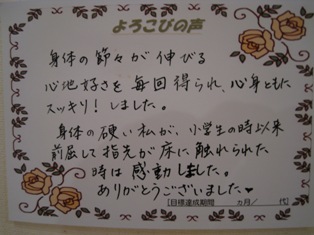 よろこびの声
身体の節々が伸びる
心地好さを毎回得られ、心身ともに
スッキリ!しました。
身体の硬い私が、小学生の時以来
前屈して指先が床に触れられた
時は感動しました。
ありがとうございました♥
[目標達成期間 ヵ月/ 代]